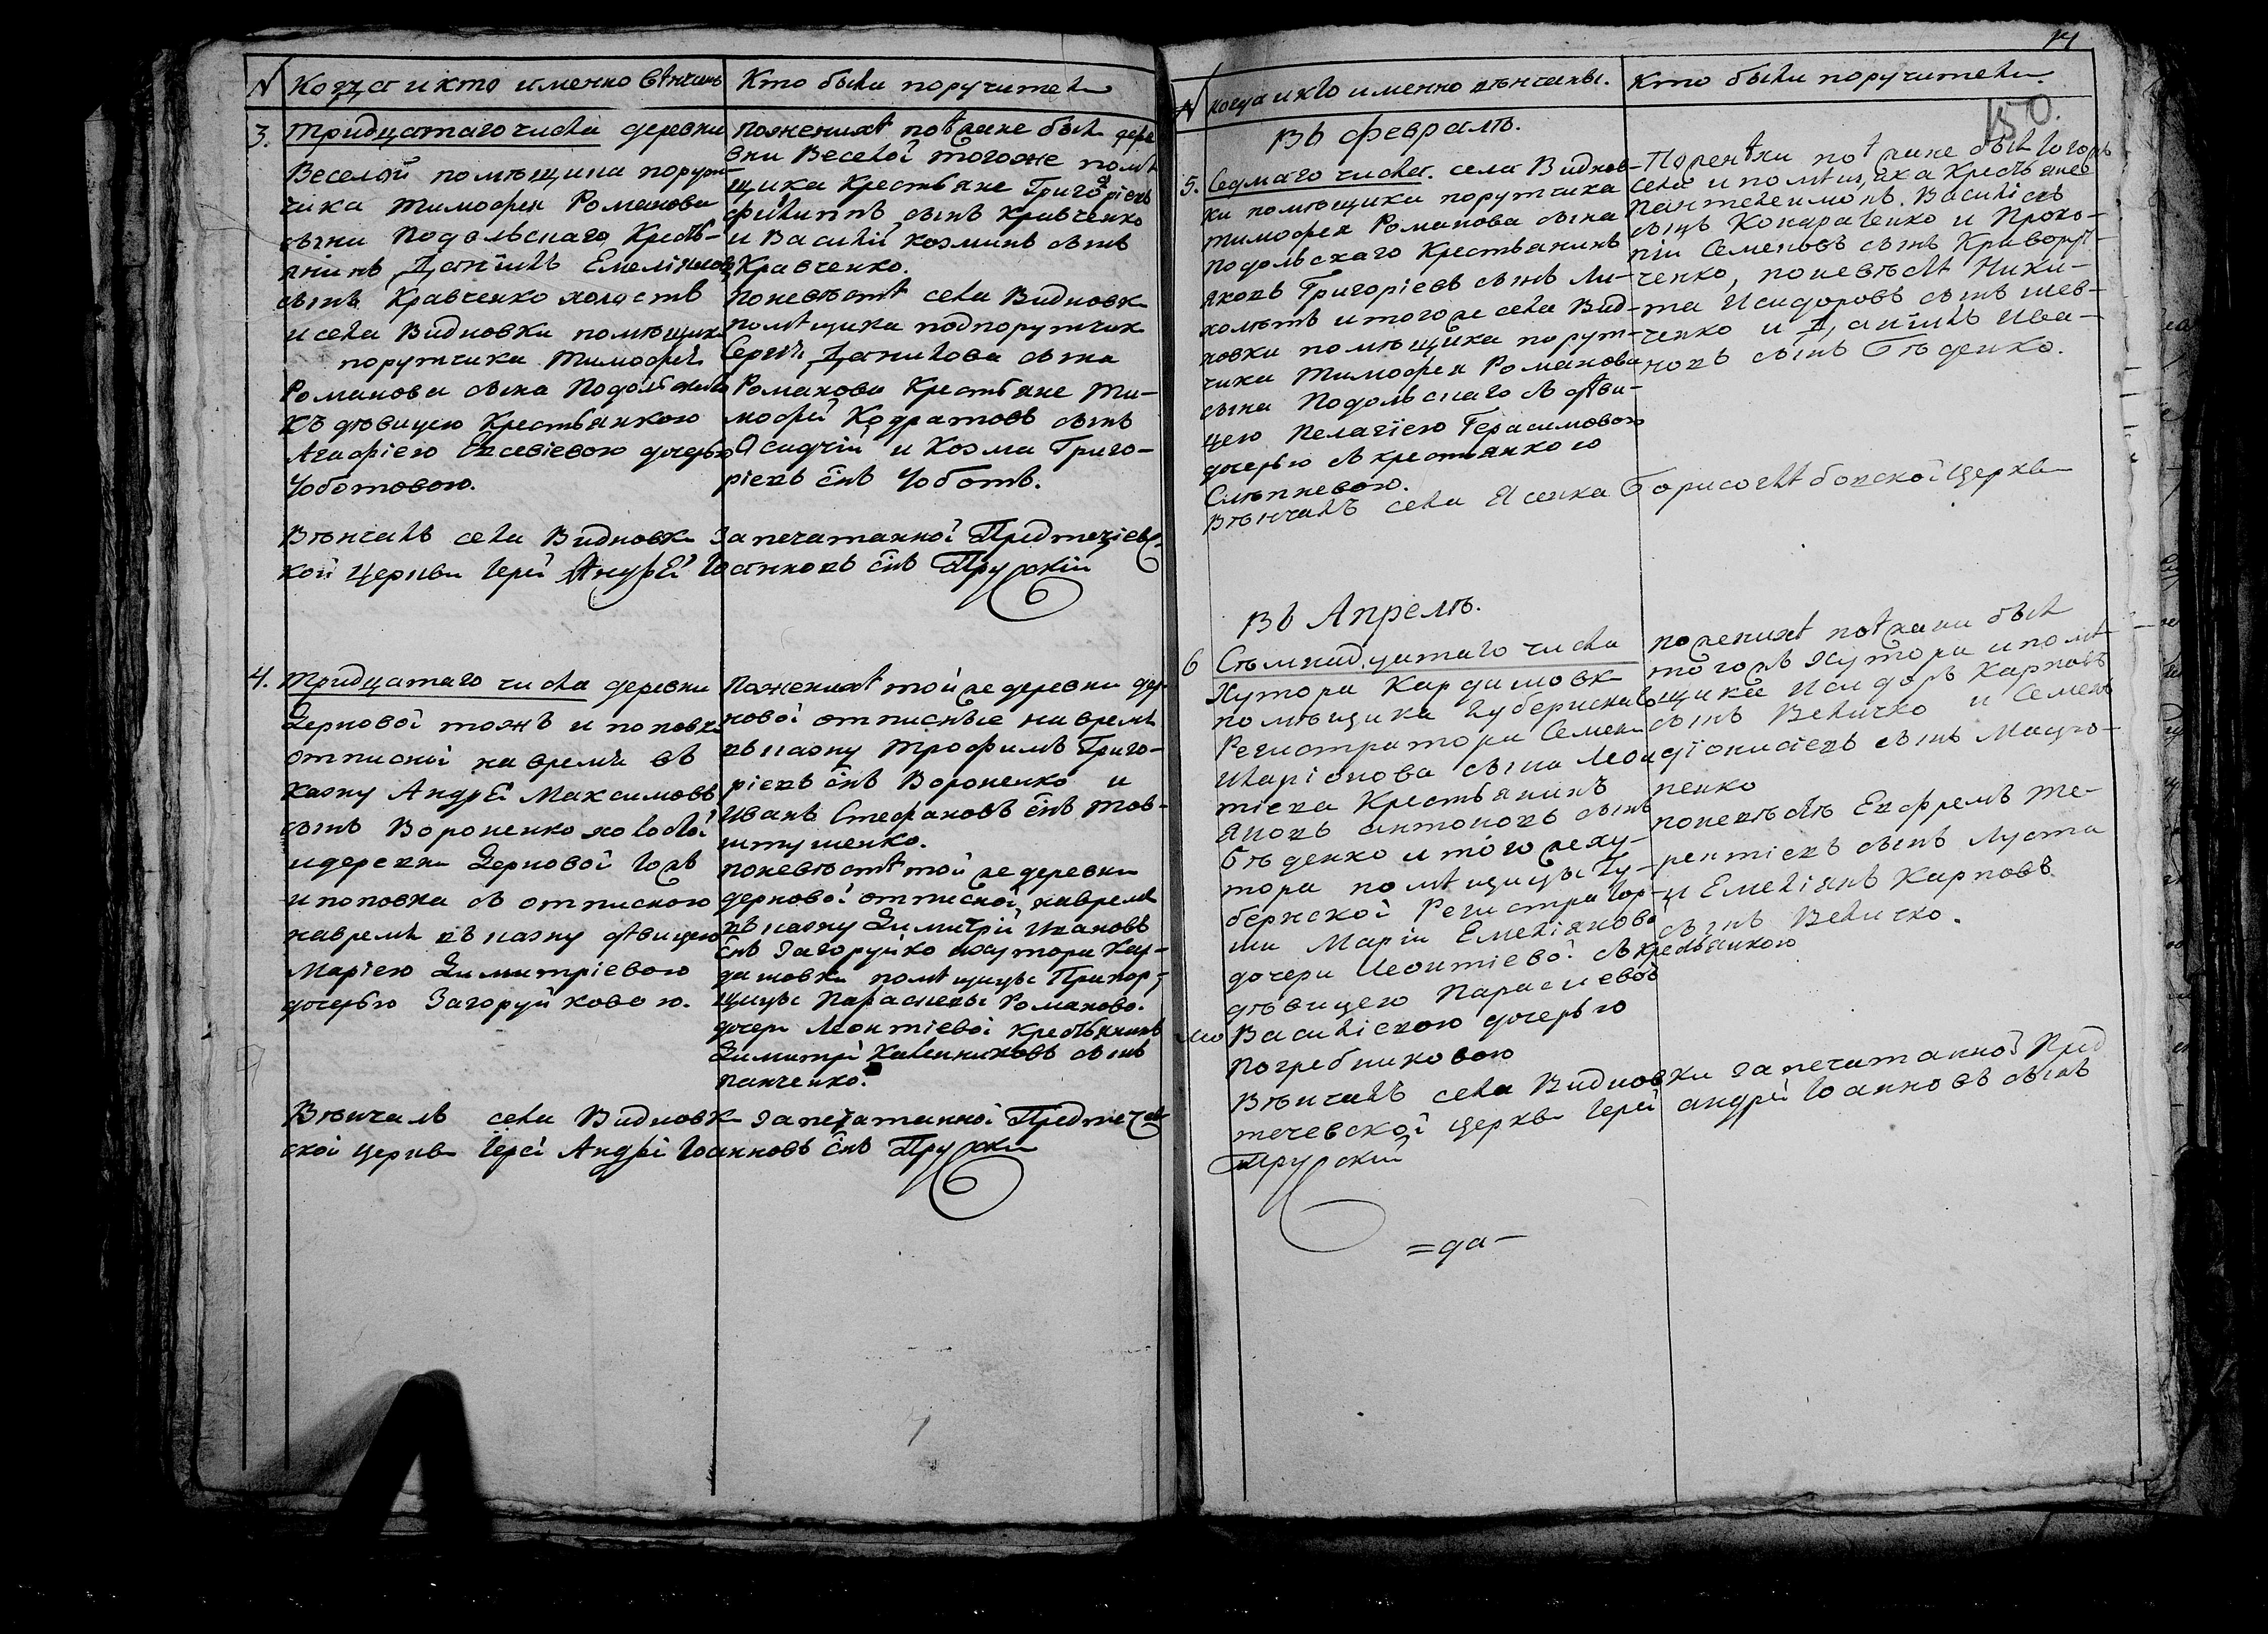 N Когда и кто именно вѣнчанъ
3. Тридцатаго числа деревни
Веселой помѣщика порут-
чика Тимофея Романова
сына Подольскаго Кресть-
янинъ Даніилъ Емеліяновъ
сынъ Кравченко холостъ
и села Видновки помѣщика
порутчика Тимофея
Романова сына Подольскаго
съ дѣвицею Крестьянкою
Агафіею Евсевіевою дочерью
Чоботовою.
Кто были поручители
Поженихѣ поѣзжане были дере
вни Веселой тогоже помѣ
щика Крестьяне Григоріевъ
Филиппъ сынъ Кравченко
и Василій Козминъ сынъ
Кравченко.
Поневѣстѣ села Видновки
помѣщика подпорутчика
Сергія Данилова сына
Романова Крестьяне Ти-
мофей Кодратовъ сынъ
Осидчій и Козма Григо-
ріевъ снъ Чоботъ.
Вѣнчалъ села Видновки Запечатанной Предтечіевс
кой Церкви Іерей Андрей Іоанновъ снъ Прускій
4. Тридцатаго числа деревни
Дерновой тожъ и поповка
отписной навремя въ
казну Андрей Максимовъ
сынъ Вороненко холостой
и деревни Дерновой тожъ
и поповка съ отписною
навремя въ казну дѣвицею
Маріею Димитріевою
дочерью Загоруйковою.
Поженихѣ тойже деревни дер-
новой отписные навремя
въ казну Трофимъ Григо-
ріевъ снъ Вороненко и
Иванъ Стефановъ снъ Тов-
штушенко.
поневѣстѣ тойже деревни
дерновой отписной навремя
въ казну Димитрій Ивановъ
снъ Загоруйко хутора Кар-
дашовки помѣщицы Прапор-
щицы Параскевы Романово.
дочери Леонтіевой Крестьянинъ
Димитрій сынъ
панченко.
Вѣнчалъ села Видновки Запечатанной Предтечев
ской церкви Іерей Андрей Іоанновъ снъ Пруский
14
150.
N когда и кто именно вѣнчаны.
Въ февралѣ.
5. Седмаго числа. села Виднов-
ки помѣщика порутчика
Тимофея Романова сына
Подольскаго Крестьянинъ
Яковъ Григоріевъ сынъ Ли-
холѣтъ и тогоже села Вид-
новки помѣщика порут-
чика Тимофея Романова
сына Подольскаго съ дѣви-
цею Пелагіею Герасимовою
дочерью съ крестьянкою
Слѣпневою.
Кто были поручители.
По женихѣ поѣзжане были тогожъ
села и помѣщика Крестьяне
Пантелеимонъ Василіевъ
сынъ Кондратенко и Проко-
пій Семеновъ сынъ Криворуч-
ченко, поневѣстѣ Ники-
та Исидоровъ сынъ Шев-
ченко и Даніилъ Ива-
новъ сынъ Бѣденко.
Вѣнчалъ села Ясенка Борисоглѣбовской Церкви
Въ Апрелѣ.
6 Сѣмнадцатаго числа
Хутора Кардашовки
помѣщика губернскаго
Регистратора Семена
Иларіонова сына Леон
тіева Крестьянинъ
Яковъ Антоновъ сынъ
Бѣденко и тогоже ху-
тора помѣщицы Гу-
бернской Регистратор-
ши Маріи Емеліяновой
дочери Леонтіевой съ крестьянкою
дѣвицею Параскевою
Василіевою дочерью
Погребняковою
поженихѣ поѣзжани были
тогожъ Хутора и помѣ
щика Исидоръ Карповъ
сынъ Величко и Семенъ
Діонисіевъ сынъ Мацю-
пенко
поневѣстѣ Ефремъ Те-
рентіевъ сынъ Луста
и Емеліянъ Карповъ
сынъ Величко.
Вѣнчалъ села Видновки запечатанной Пред
течевской церкви Іерей Андрей Іоанновъ сынъ
Прускій
=да-